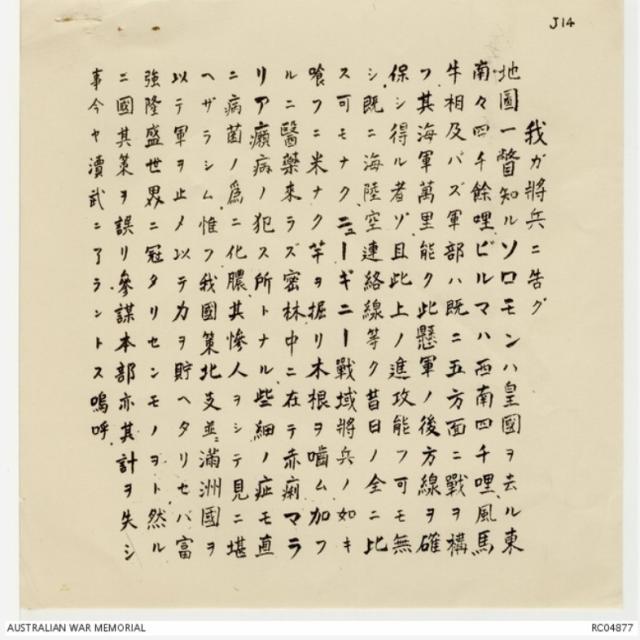 J14
我ガ將兵ニ告グ
地圖一瞥知ルソロモンハ皇國ヲ去ル東
南々四千餘哩ビルマハ西南四千哩風馬
牛相及バズ軍部ハ既ニ五方面ニ戰ヲ構
フ其海軍萬里能ク此懸軍ノ後方線ヲ確
保シ得ル者ゾ且此上ノ進攻能フ可モ無
シ既ニ海陸空連絡線等ク昔日ノ全ニ比
ス可モナクニューギニー戰域將兵ノ如キ
喰フニ米ナク芋ヲ掘リ木根ヲ嚙ム加フ
ルニ醫藥來ラズ密林中ニ在テ赤痢マラ
リア癩病ノ犯ス所トナル些細ノ症モ直
ニ病菌ノ爲ニ化膿其慘人ヲシテ見ニ堪
ヘザラシム惟フ我國策北支並滿洲國ヲ
以テ軍ヲ止メ以テ力ヲ貯ヘタリセバ富
強隆盛世界ニ冠タリセンモノヲト然ル
ニ國其策ヲ誤リ參謀本部亦其計ヲ失シ
事今ヤ瀆武ニ了ラントス嗚呼
AUSTRALIAN WAR MEMORIAL
RC04877